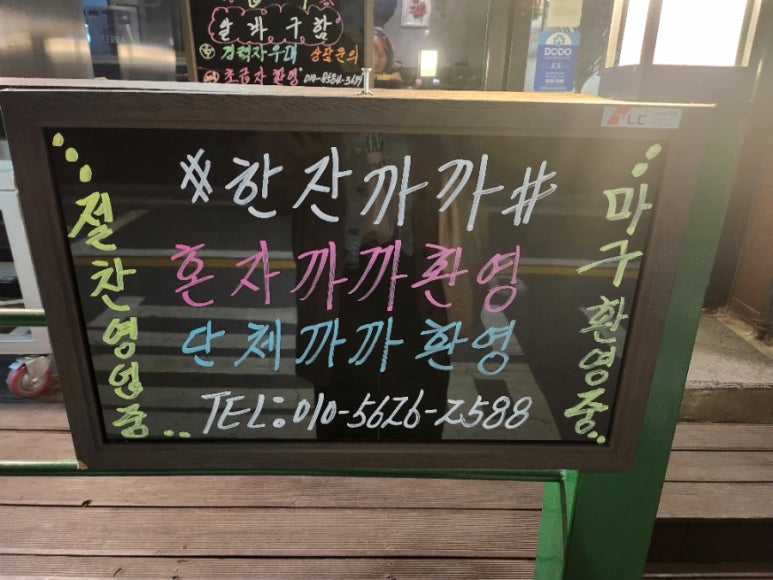 손과구함
경력자우대 상담문의
초급자 환영 010-8584-3659
TERRA
DODO
LC
#한잔까까#
혼자까까환영
단체까까환영
TEL:010-5626-2588
절찬영영중..
마구환영중..